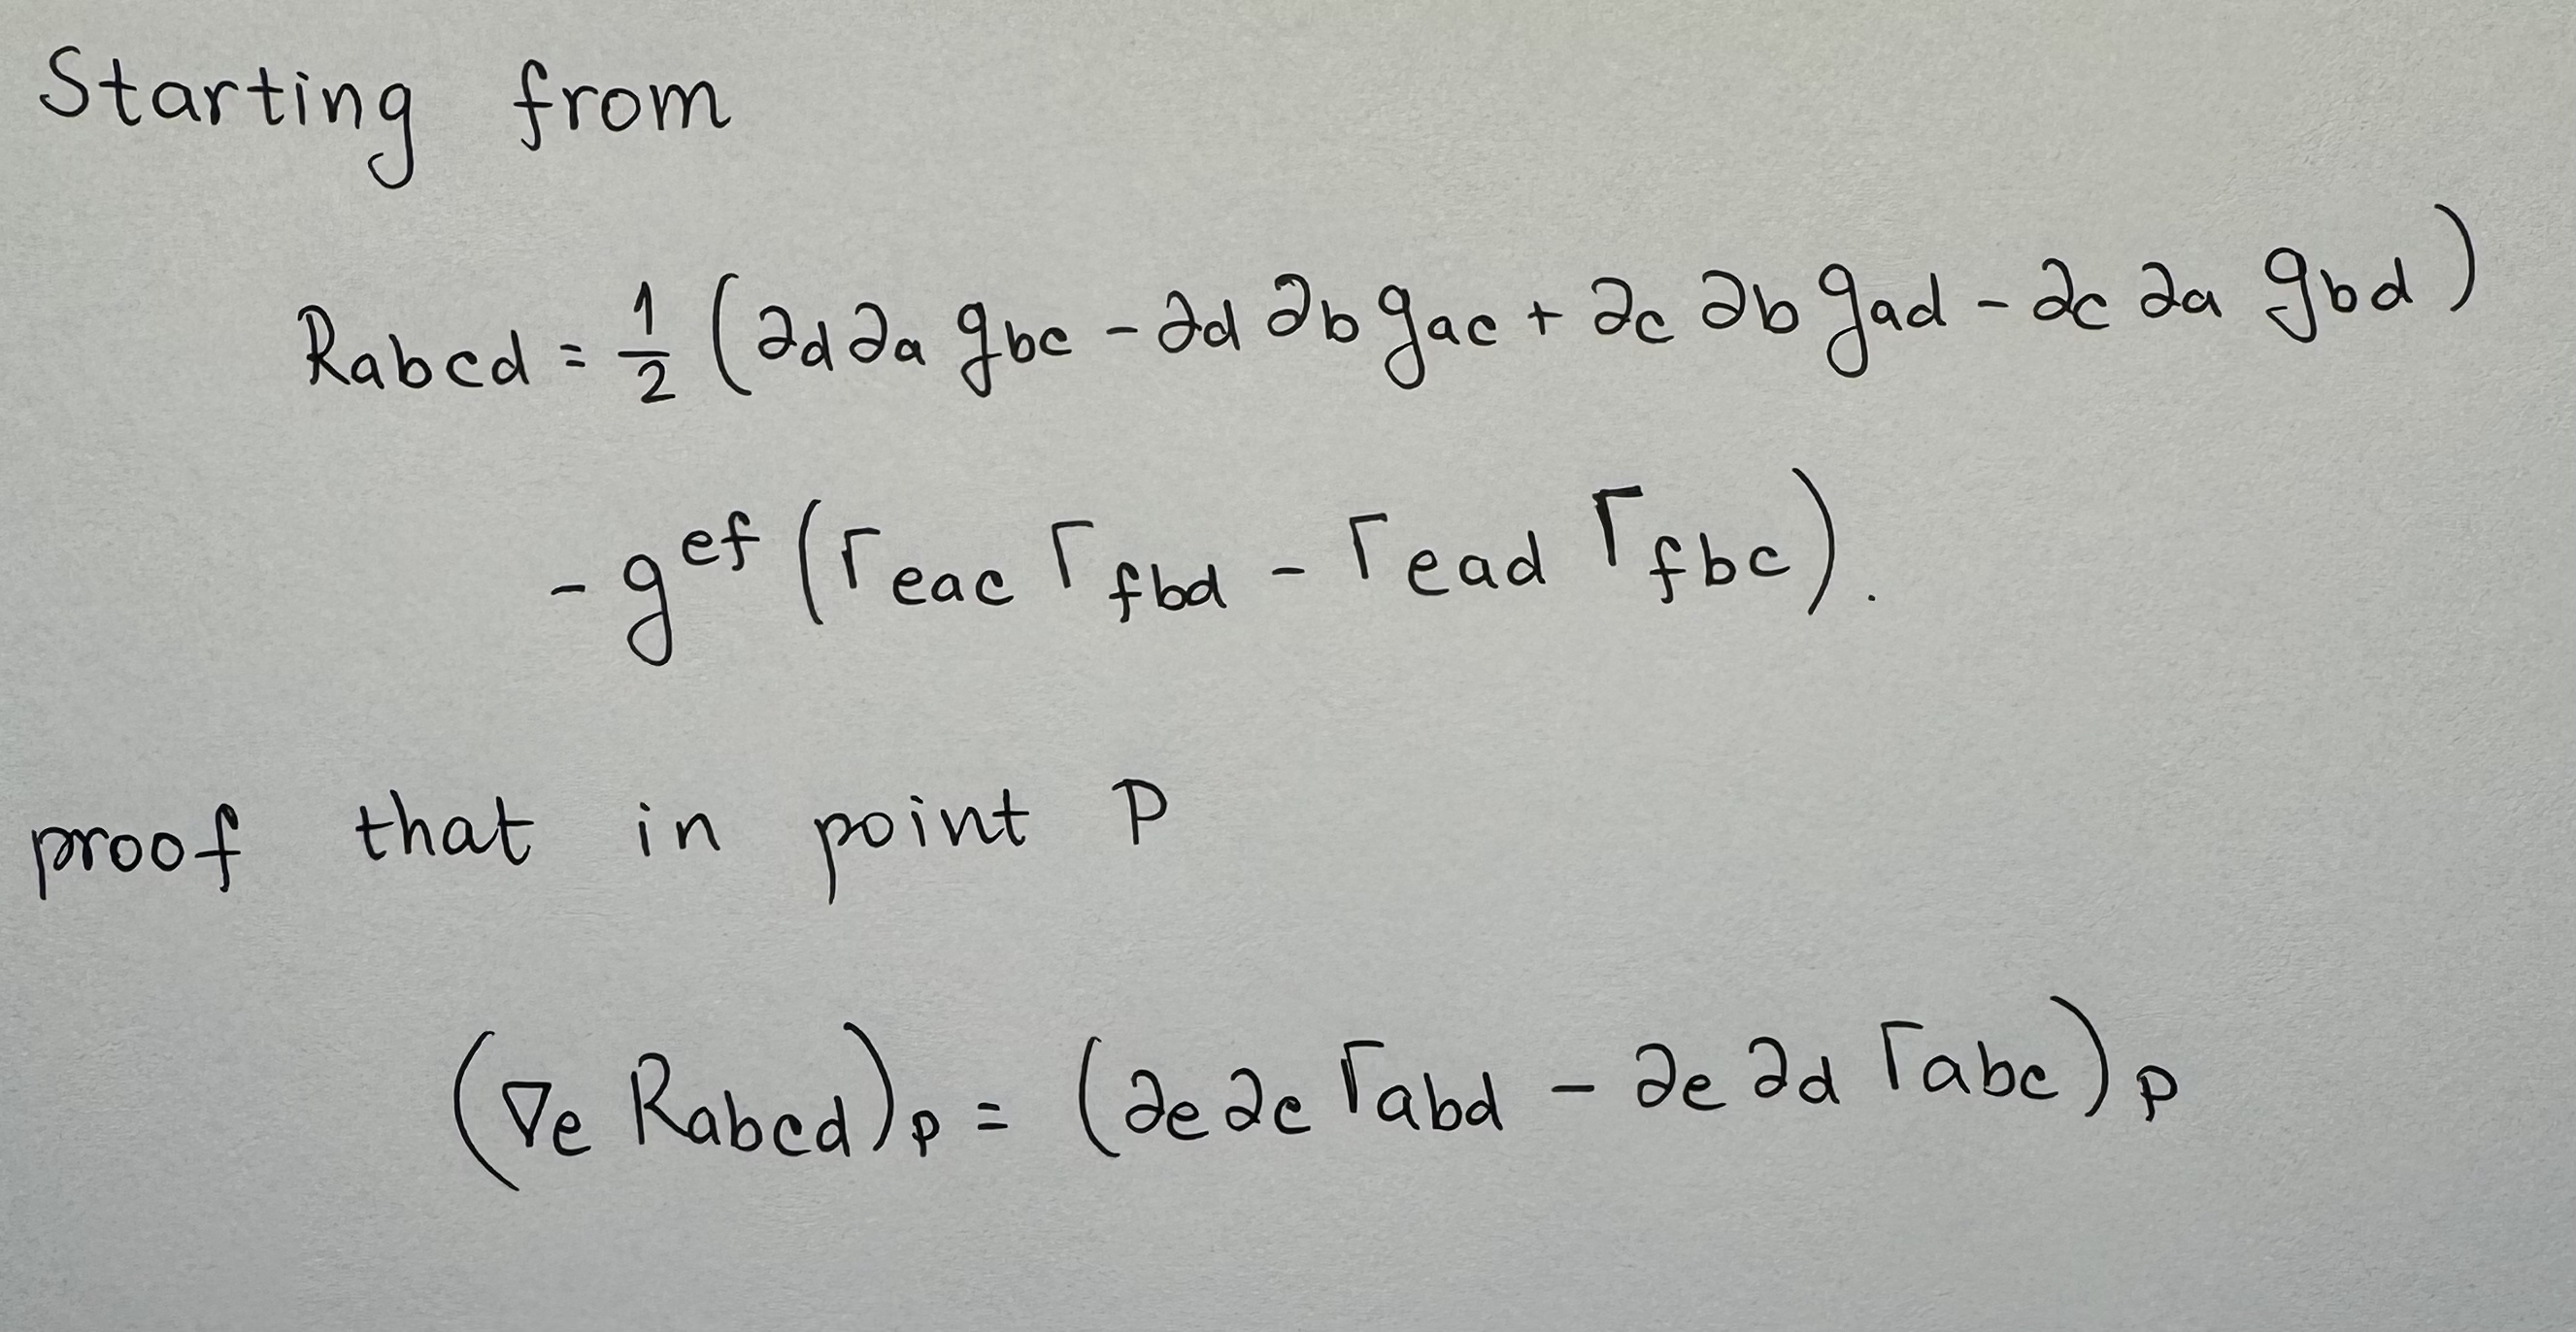 Starting from
Rabcd = 1/2 (∂d∂a gbc - ∂d ∂b gac + ∂c ∂b gad - ∂c ∂a gbd)
- g^ef (Γeac Γfbd - Γead Γfbc).
proof that in point P
(∇e Rabcd)P = (∂e∂c Γabd - ∂e ∂d Γabc)P